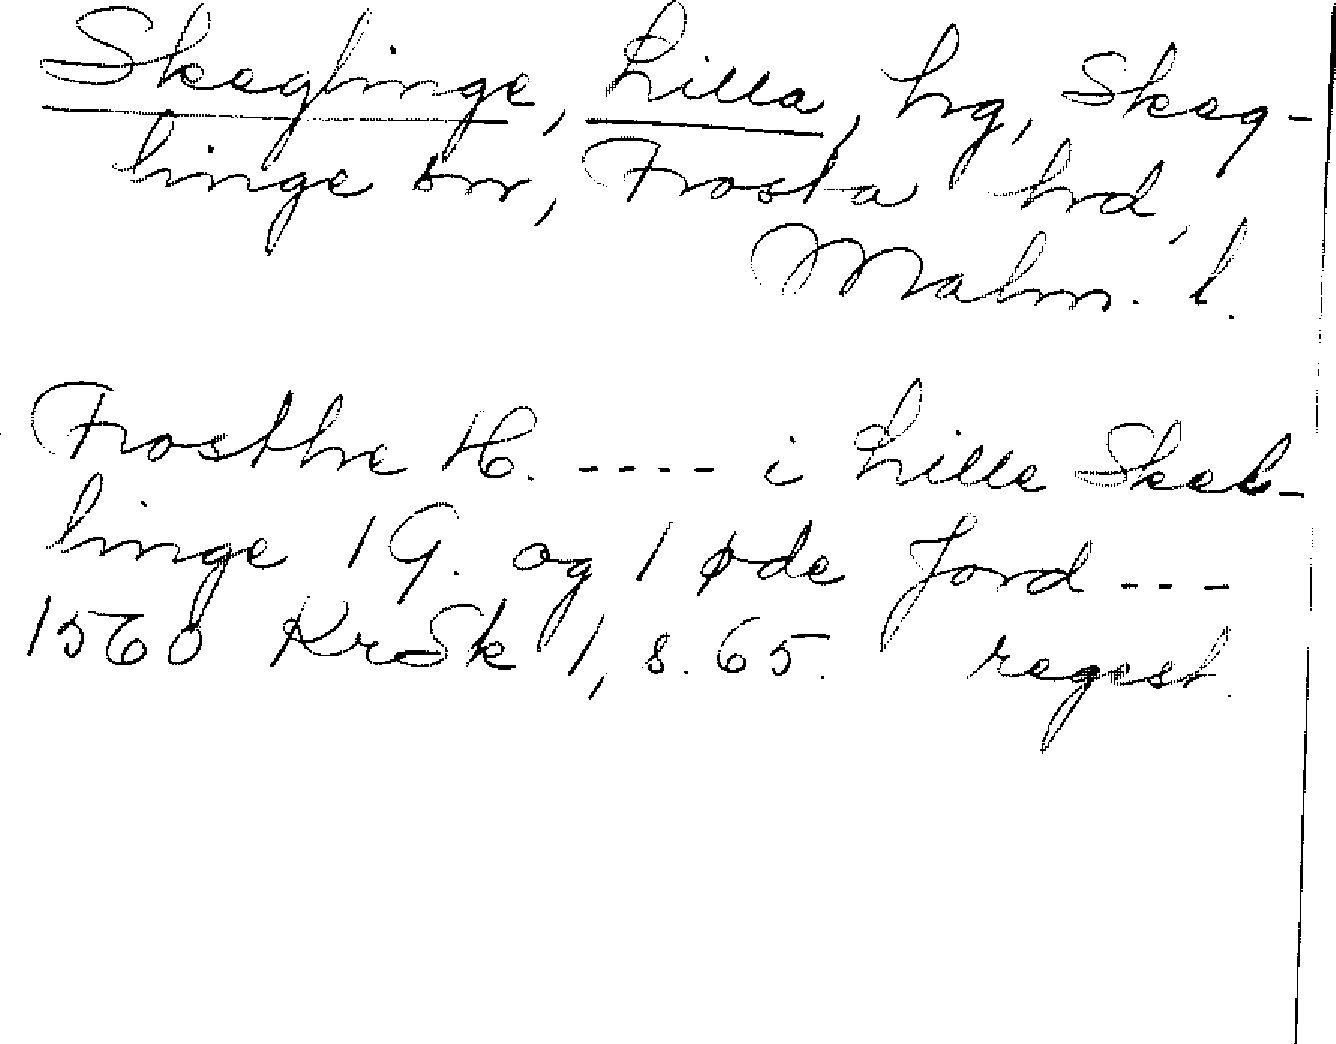 Skeglinge, Lilla, hrg, Skeg-
linge sn, Frosta hrd,
Malm. l.
Frosthe H. ---- i Lille Skek-
linge 1 G. og 1 øde Jord ---
1560 KrSk 1, s. 65. regest.